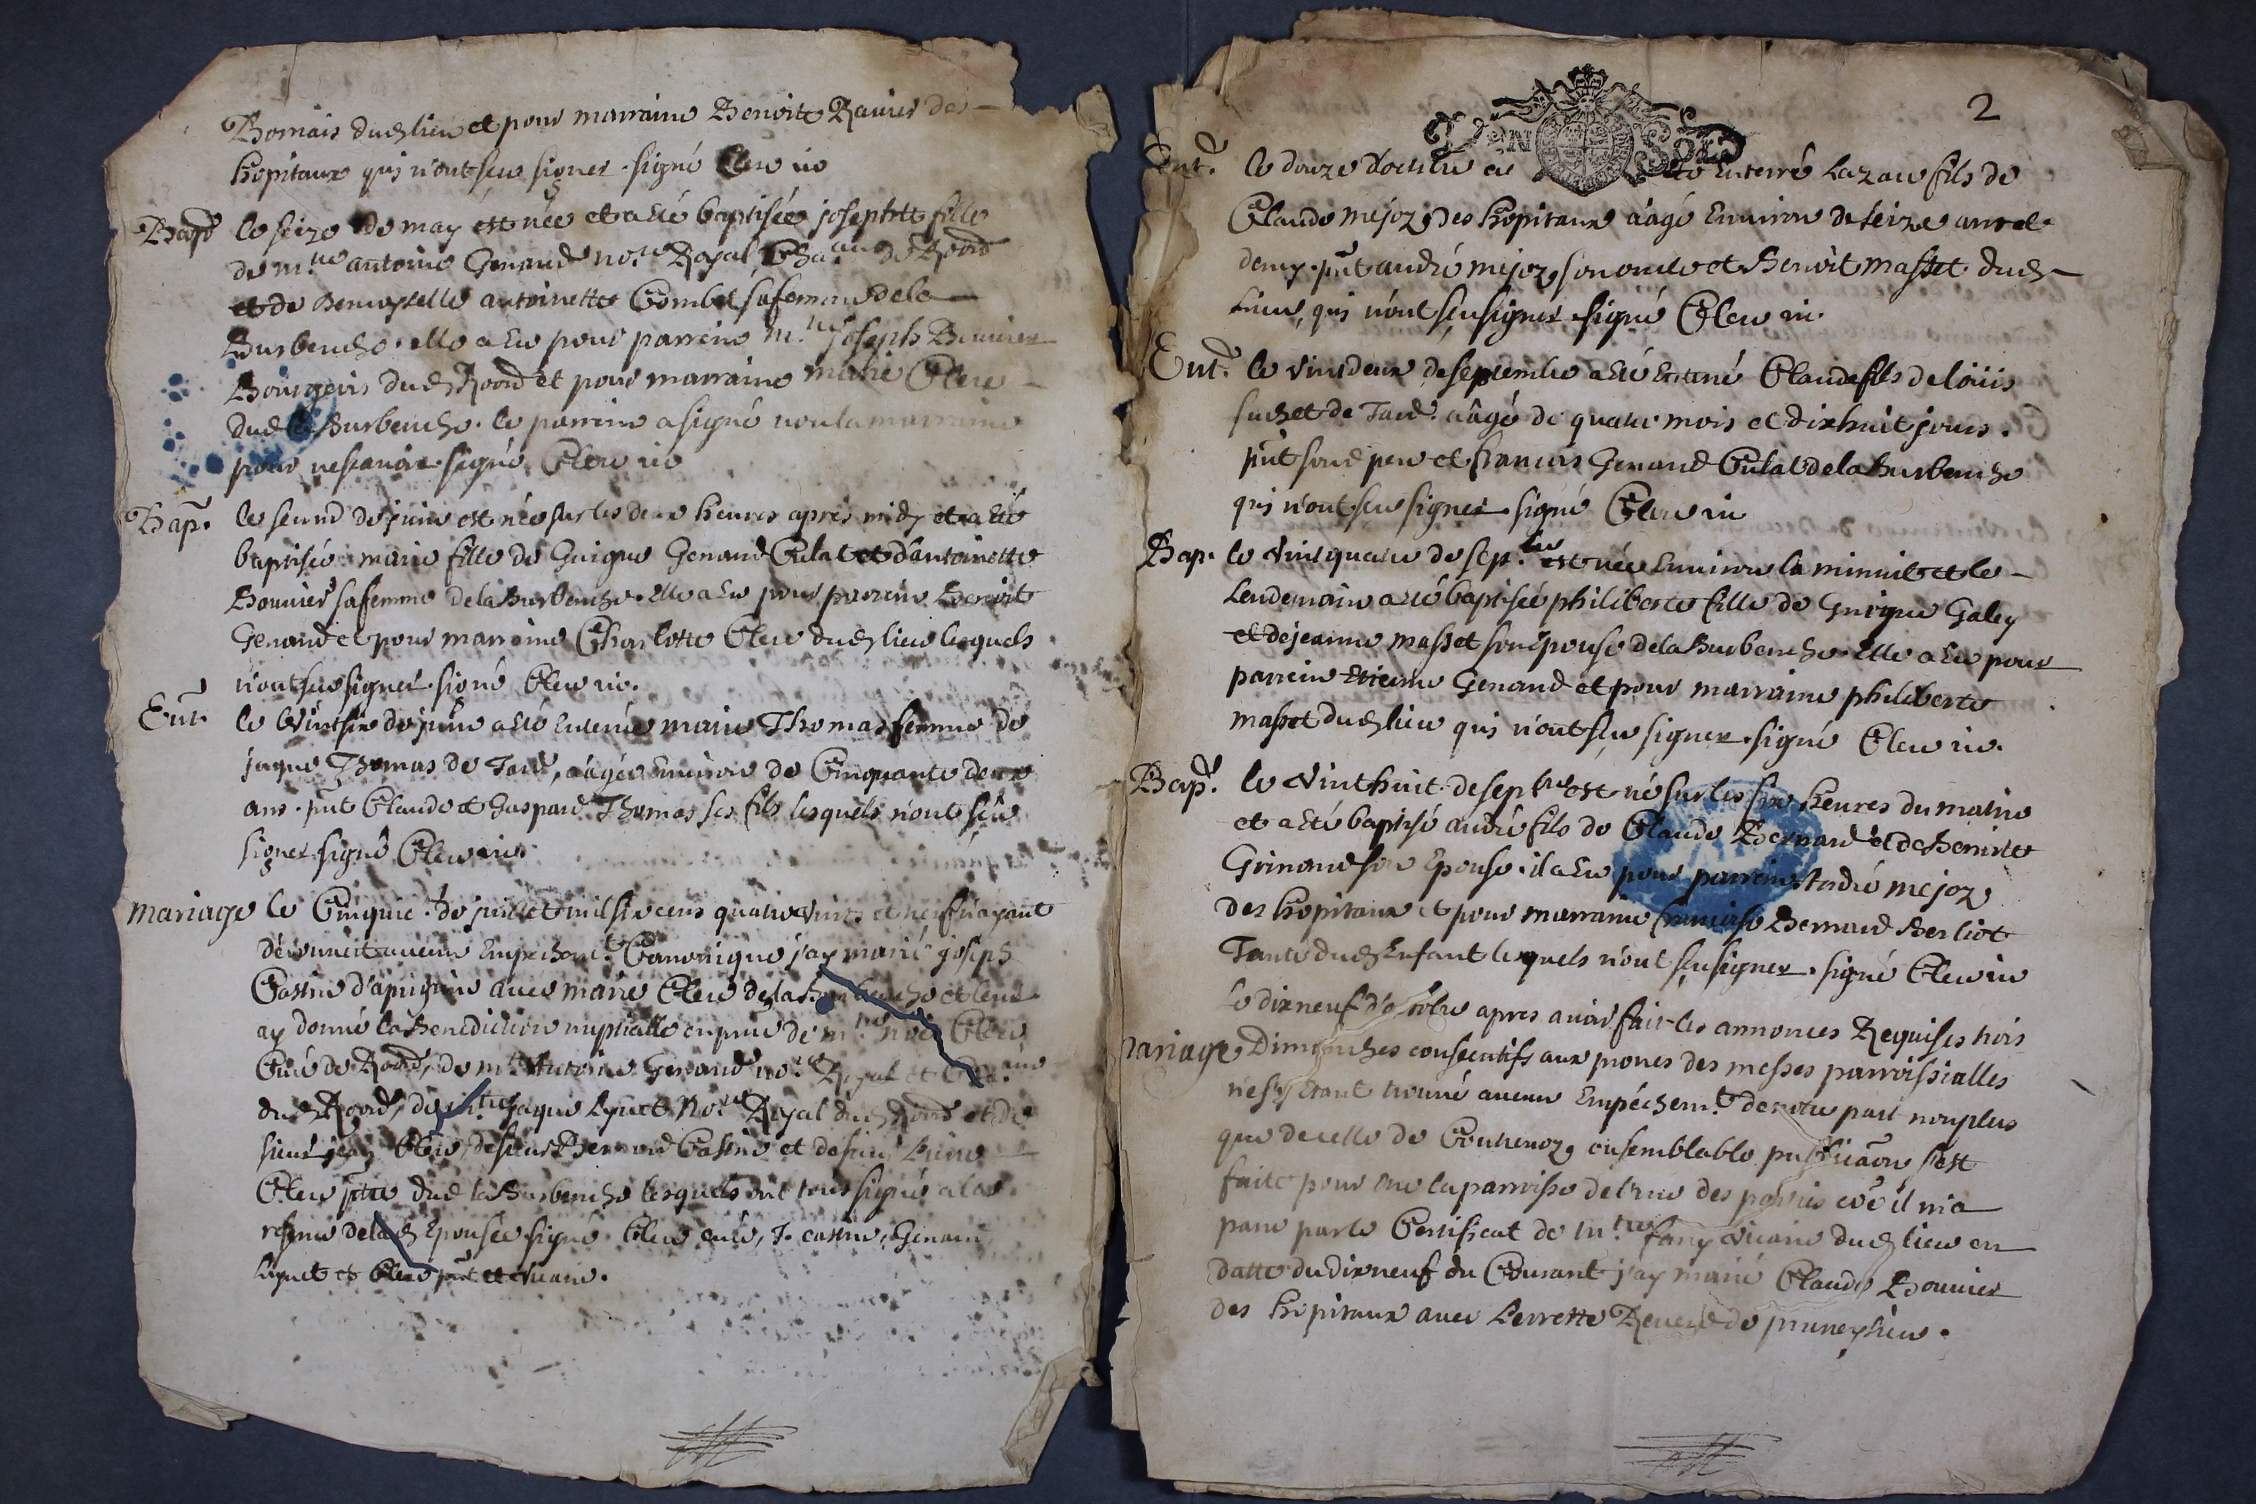 Bornais dud lieu et pour marraine Benoite Ravier des
hopitaux qui n'ont sceu signer. signé Clerc vic
Bap. le seize de may est née et a été baptisée josephte fille
de m.tre antoine Genaud no.re Royal
et de Demoyselle antoinette Combet sa femme de la
Burbenche. elle a eu pour parrein m.tre joseph Bouvier
Bourgeois dud et pour marraine marie Clerc
dud la Burbenche. le parrein a signé non la marraine
pour ne scavoir signé Clerc vic
Bap. le second de juin est née sur les deux heures apres midy et a été
baptisée marie fille de Guigue Genaud Culat et d'antoinette
Bouvier sa femme de la Burbenche. elle a eu pour parrein Benoit
Genaud et pour marraine Charlotte Clerc dud lieu lesquels
n'ont sceu signer. signé Clerc vic.
Ent. le vintsix de juin a été enterrée marie Thomas femme de
jaque Thomas de Tard, aâgée environ de Cinquante deux
ans. pnt Claude et Gaspard Thomas ses fils lesquels n'ont sceu
signer. signé Clerc vic.
mariage le Cinquie. de juillet mil six cens quatre vint et neuf n'ayant
découvert aucun Empechem.t Canonique j'ay marié joseph
Castin avec marie Clerc de la Burbenche et leur
ay donné la Benediction nuptialle en pnce de m.tre Clerc
Curé de m.tre Antoine Genaud no.re Royal et
dud de m.tre jaque Lyuet No.re Royal dud et de
sieur jean Clerc, de sieur Bernard Castin et de sieur
Clerc ptre dud la Burbenche lesquels ont tous signé a la
reserve de lad Epousée signé. Clerc curé, J. castin, Genaud,
Lyuet et Clerc pnt et vicaire.
2
VEN SOLS
Ent. le douze d'octobre eté Enterré Lazare fils de
Claude mejoz des hopitaux aâgé Environ de seize ans et
demy. pnt andré mejoz son oncle et Benoit masset dud
Lieu, qui n'ont sceu signer. signé Clerc vic.
Ent. le vint deux de septembre a été Enterré Claude fils de loüis
suchet de Tard. aâgé de quatre mois et dixhuit jours.
pnt sond pere et francois Genaud Culat de la Burbenche
qui n'ont sceu signer. signé Clerc vic
Bap. le vint quatre de sep.bre est née Environ la minuit et le
Lendemain a été baptisée philiberte fille de Guigue Galey
et de jeanne masset son Epouse de la Burbenche. elle a eu pour
parrein Etienne Genaud et pour marraine philiberte
masset dud lieu qui n'ont sceu signer. signé Clerc vic.
Bap. le vint huit de sepbre est né sur les six heures du matin
et a été baptisé andré fils de Claude Bernard et de Benoite
Grinand son Epouse. il a eu pour parrein André mejoz
des hopitaux et pour marraine francoise Bernard Berliot
Tante dud Enfant lesquels n'ont sceu signer. signé Clerc vic
Le dixneuf d'octobre apres avoir fait les annonces Requises trois
mariage Dimanches consecutifs aux prones des messes parroissialles
ne s'y étant trouvé aucun Empéchem.t de notre part non plus
que de celle de Coutrenoz, ou semblable s'est
faite pour une la parroisse de l'une des parties coe il m'a
paru par le Certificat de m.tre vicaire dud lieu en
datte du dixneuf du Courant j'ay marié Claude Bouvier
des hopitaux avec Perrette de pruneyrieu.